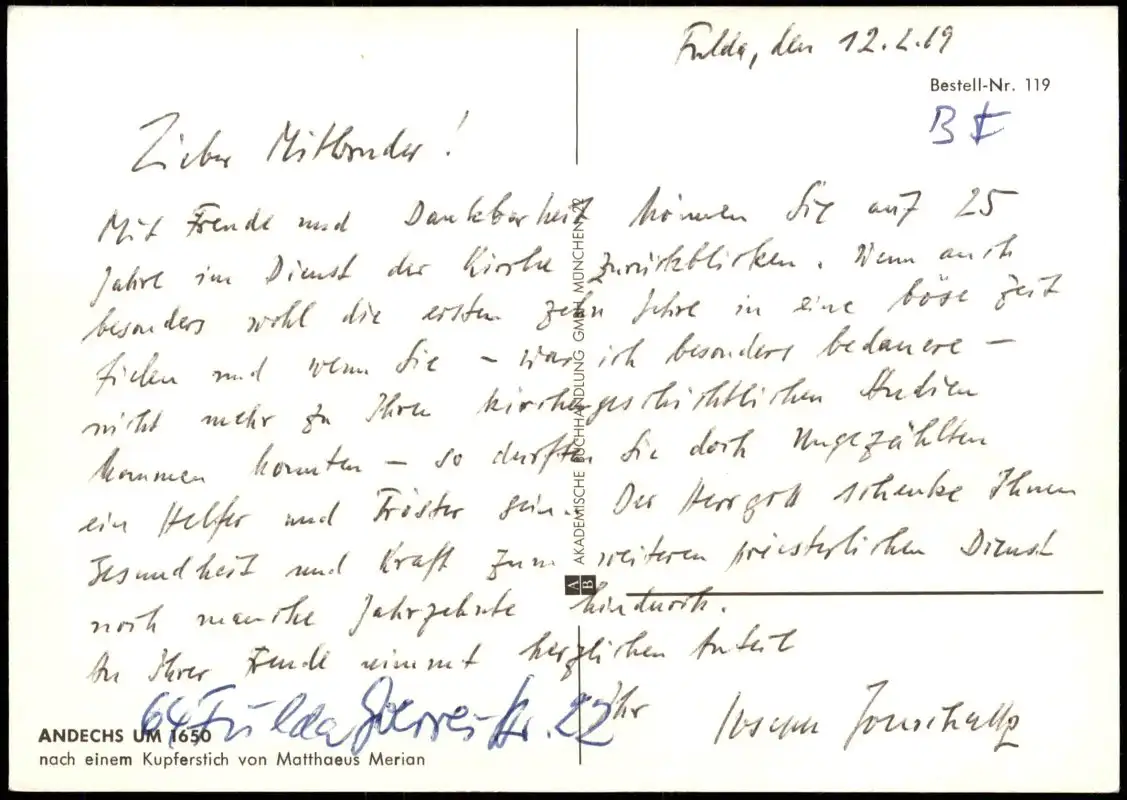 Fulda, den 12.2.69
Bestell-Nr. 119
Lieber Mitbruder!
Mit Freude und Dankbarkeit können Sie auf 25
Jahre im Dienst der Kirche zurückblicken. Wenn auch
besonders wohl die ersten zehn Jahre in eine böse Zeit
fielen und wenn Sie – was ich besonders bedauere –
nicht mehr zu Ihren kirchengeschichtlichen Studien
kommen konnten – so durften Sie doch Ungezählten
ein Helfer und Tröster sein. Der Herrgott schenke Ihnen
Gesundheit und Kraft zum weiteren priesterlichen Dienst
noch manche Jahrzehnte hindurch.
An Ihrer Freude nimmt herzlichen Anteil
Ihr Joseph
64 Fulda
22
AKADEMISCHE BUCHHANDLUNG GMBH, MÜNCHEN 22
A B
ANDECHS UM 1650
nach einem Kupferstich von Matthaeus Merian